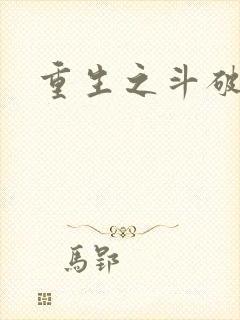 重生之斗破
馬郢